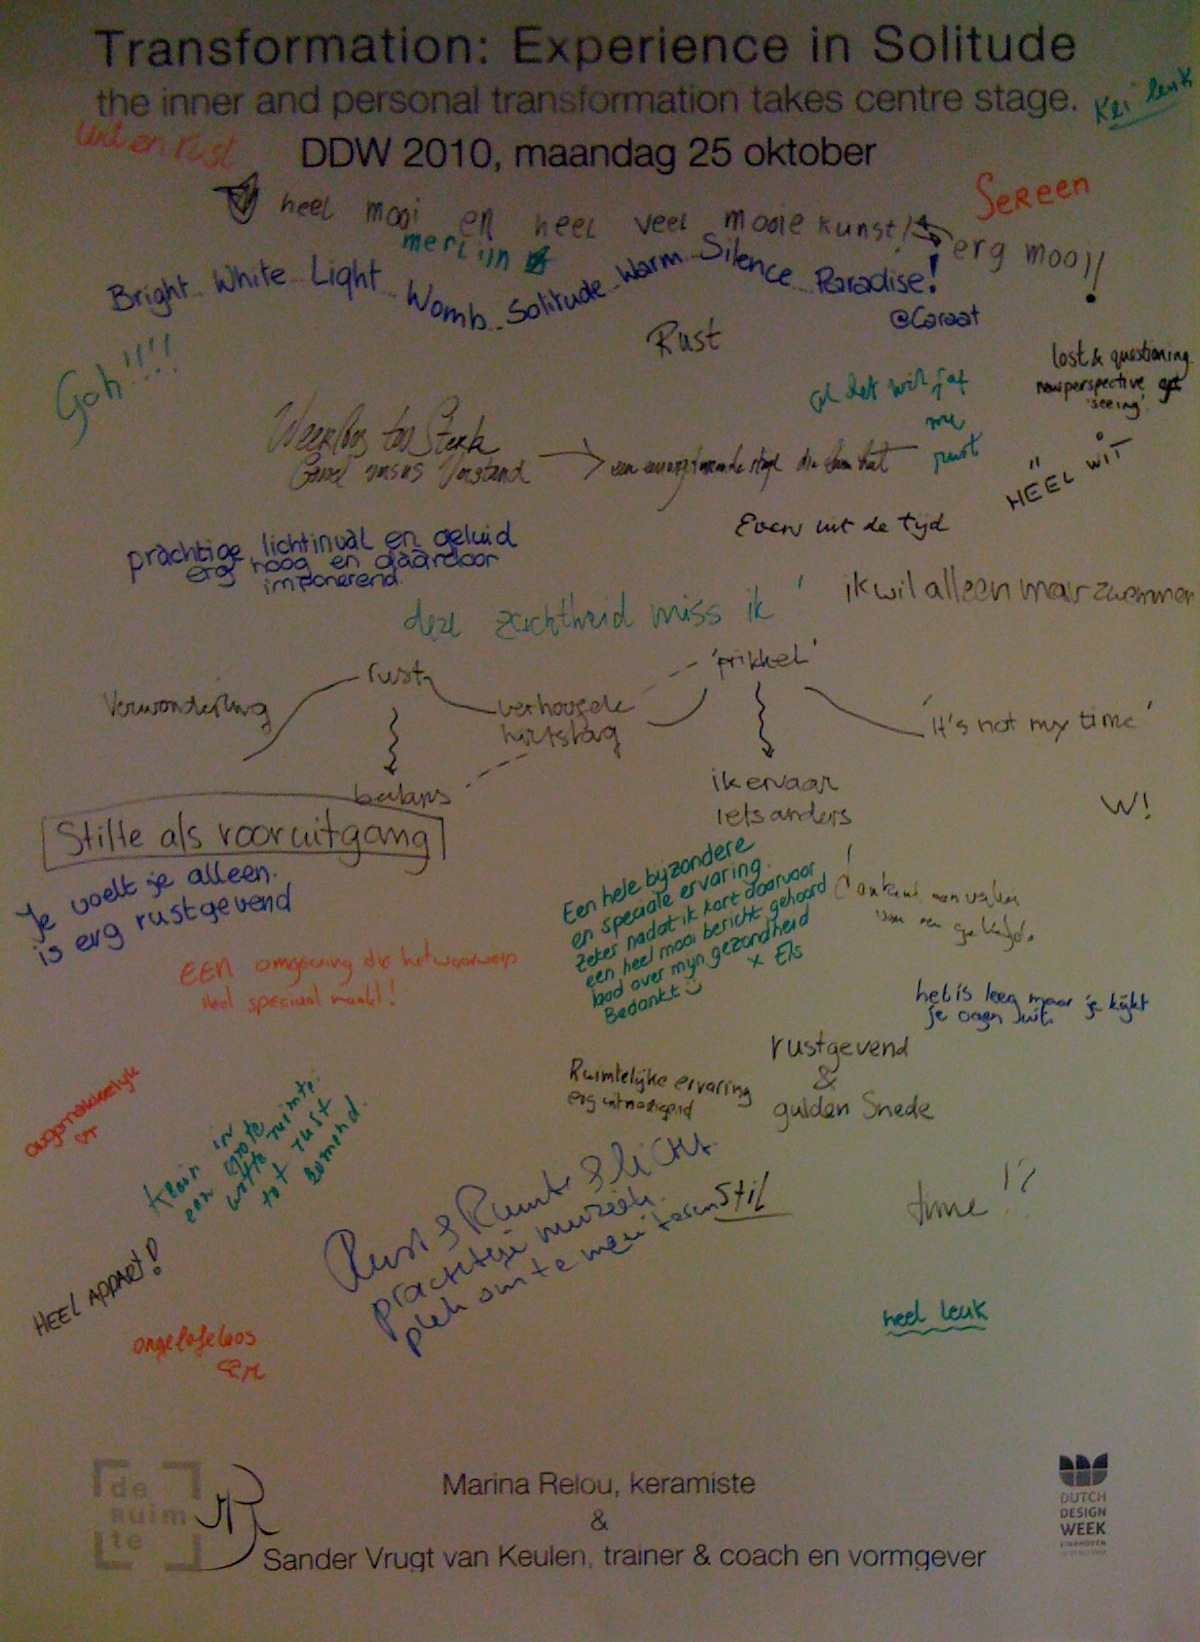 Transformation: Experience in Solitude
the inner and personal transformation takes centre stage.
Kei leuk
DDW 2010, maandag 25 oktober
Sereen
heel mooi en heel veel mooie kunst!
merlijn
erg mooi!
Bright.. White.. Light.. Womb.. Solitude.. Warm.. Silence.. Paradise!
@Caraat
Rust
Goh!!!!
lost & questioning
new perspective
'seeing'.
Weerloos
Gevoel versus Verstand
HEEL WIT
Even uit de tijd
prachtige lichtinval en geluid
erg hoog en daardoor
imponerend.
ik wil alleen maar zwemmen
deze zachtheid miss ik
rust
'prikkel'
Verwondering
verhoogde
hartslag
'it's not my time'
balans
ik ervaar
iets anders
W!
Stilte als vooruitgang
Je voelt je alleen.
is erg rustgevend
Een hele bijzondere
en speciale ervaring.
Zeker nadat ik kort daarvoor
een heel mooi bericht gehoord
had over mijn gezondheid
Bedankt x Els
EEN omgeving die het voorwerp
Heel speciaal maakt!
het is leeg maar je kijkt
je ogen uit.
rustgevend
&
gulden Snede
Ruimtelijke ervaring
erg uitnodigend
Klein in
een grote
witte ruimte
tot rust
komend.
Rust & Ruimte & licht
prachtige muziek.
plek om te mediteren
Stil
time !?
HEEL APPART!
heel leuk
de
Ruim
te
Marina Relou, keramiste
&
Sander Vrugt van Keulen, trainer & coach en vormgever
DUTCH
DESIGN
WEEK
EINDHOVEN